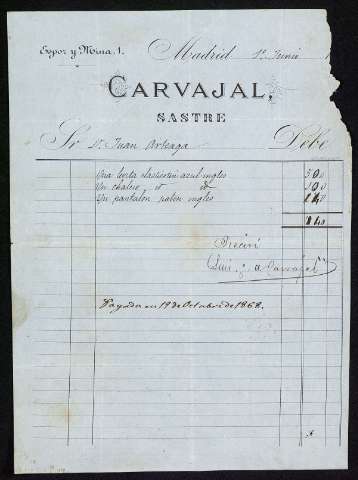 Espoz y Mina, 1.
Madrid 1º Junio
CARVAJAL,
SASTRE
Sr Dn Juan Arteaga Debe
Una levita elasticotin azul ingles 500
Un chaleco id id 100
Un pantalon paten ingles
Recivi
Luis G. de Carvajal
Pagada en 19 de Octubre de 1868.